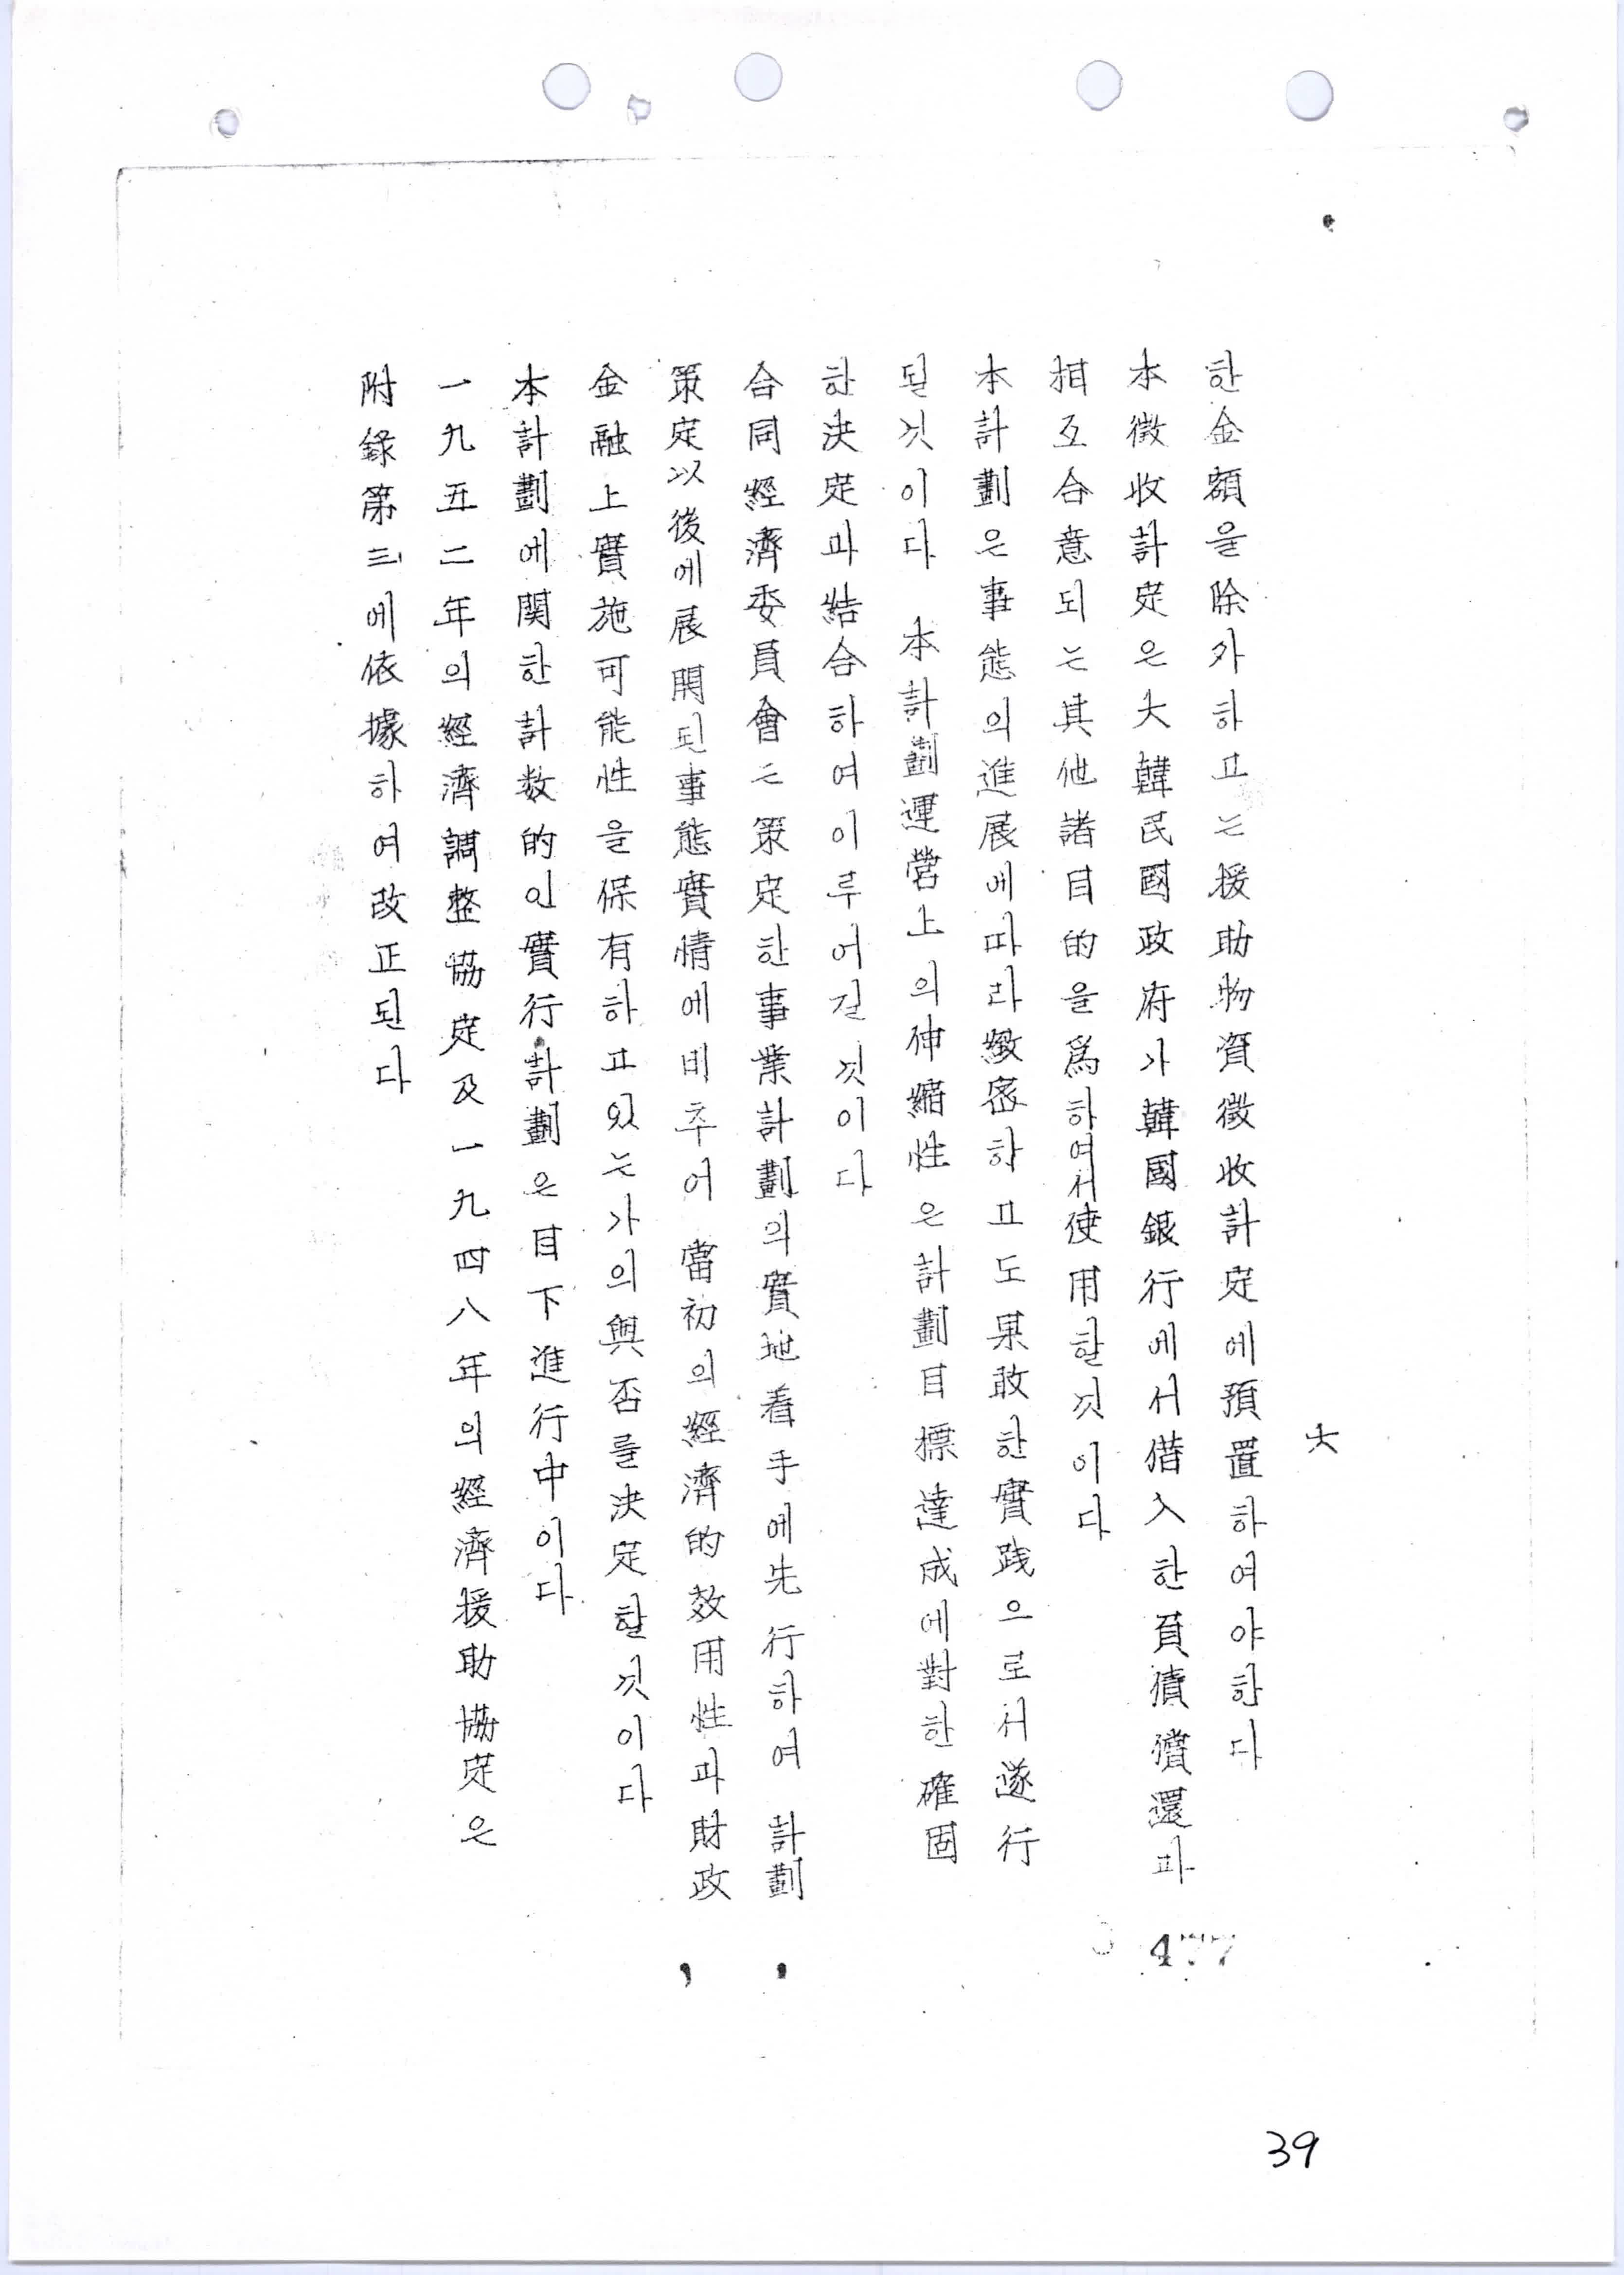 六
한金額을除外하고는援助物資徵收計定에預置하여야한다
本徵收計定은大韓民國政府가韓國銀行에서借入한負債償還과
相互合意되는其他諸目的을爲하여서使用할것이다
本計劃은事態의進展에따라緻密하고도果敢한實践으로서遂行
될것이다 本計劃運營上의伸縮性은計劃目標達成에對한確固
한決定과結合하여이루어질것이다
合同經濟委員會는策定한事業計劃의實地着手에先行하여 計劃
策定以後에展開된事態實情에비추어 當初의經濟的效用性과財政
金融上實施可能性을保有하고있는가의與否를決定할것이다
本計劃에関한計数的인實行計劃은目下進行中이다
一九五二年의經濟調整協定及一九四八年의經濟援助協定은
附錄第三에依據하여改正된다
477
39